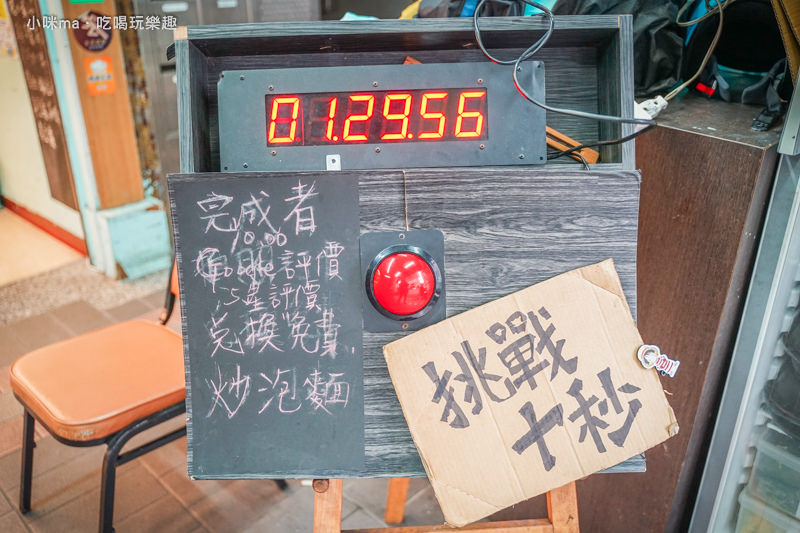 小咪ma・吃喝玩樂趣
01.29.56
完成者
10:00
Google評價
5星評價
兌換免費
炒泡麵
挑戰
十秒